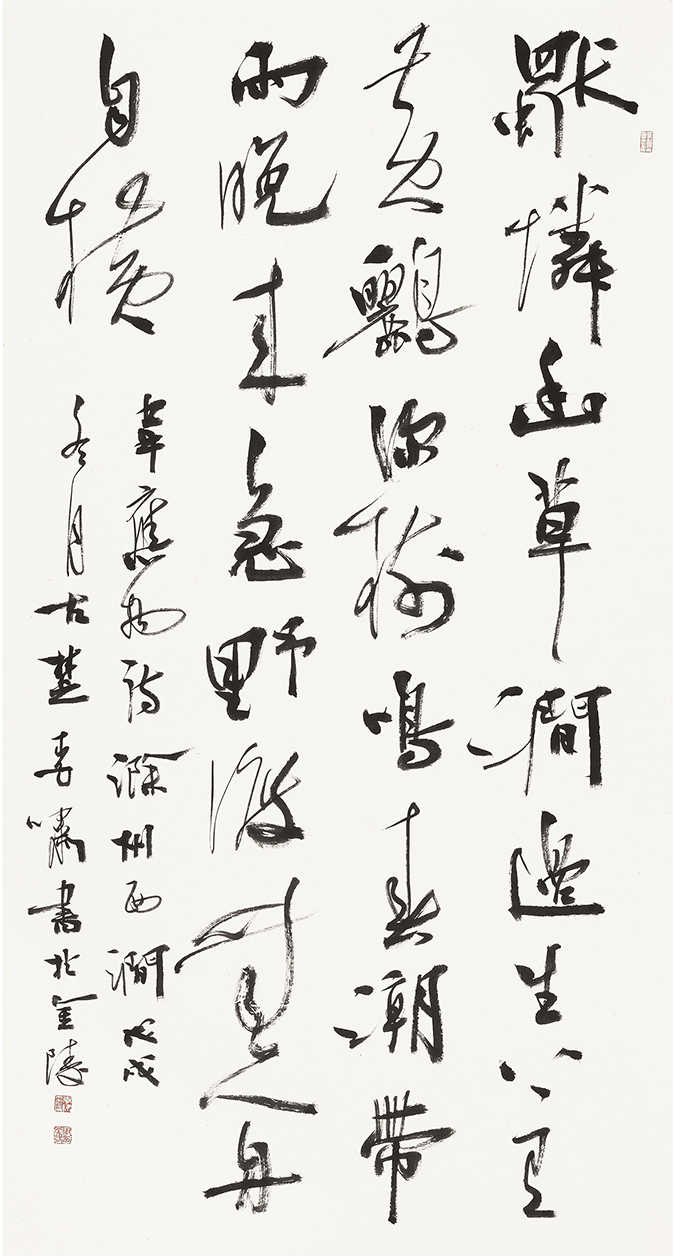 獨憐幽草澗邊生上有
黃鸝深樹鳴春潮帶
雨晚來急野渡無人舟
自橫
韋應物詩滁州西澗戊戌
冬月古楚李嘯書於金陵